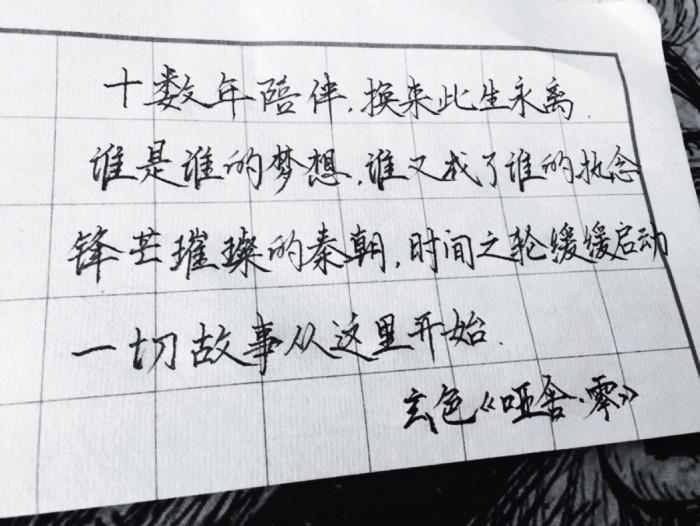 十数年陪伴,换来此生永离.
谁是谁的梦想,谁又成了谁的执念
锋芒璀璨的秦朝,时间之轮缓缓启动
一切故事从这里开始.
玄色《哑舍·零》